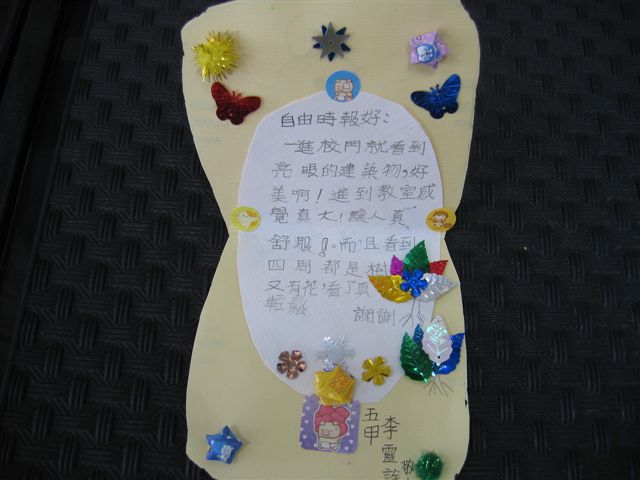 自由時報好：
一進校門就看到
亮眼的建築物，好
美啊！進到教室感
覺真大！讓人真
舒服。而且看到
四周都是樹
又有花，看了真
輕鬆 謝謝
五甲
李靈
敬